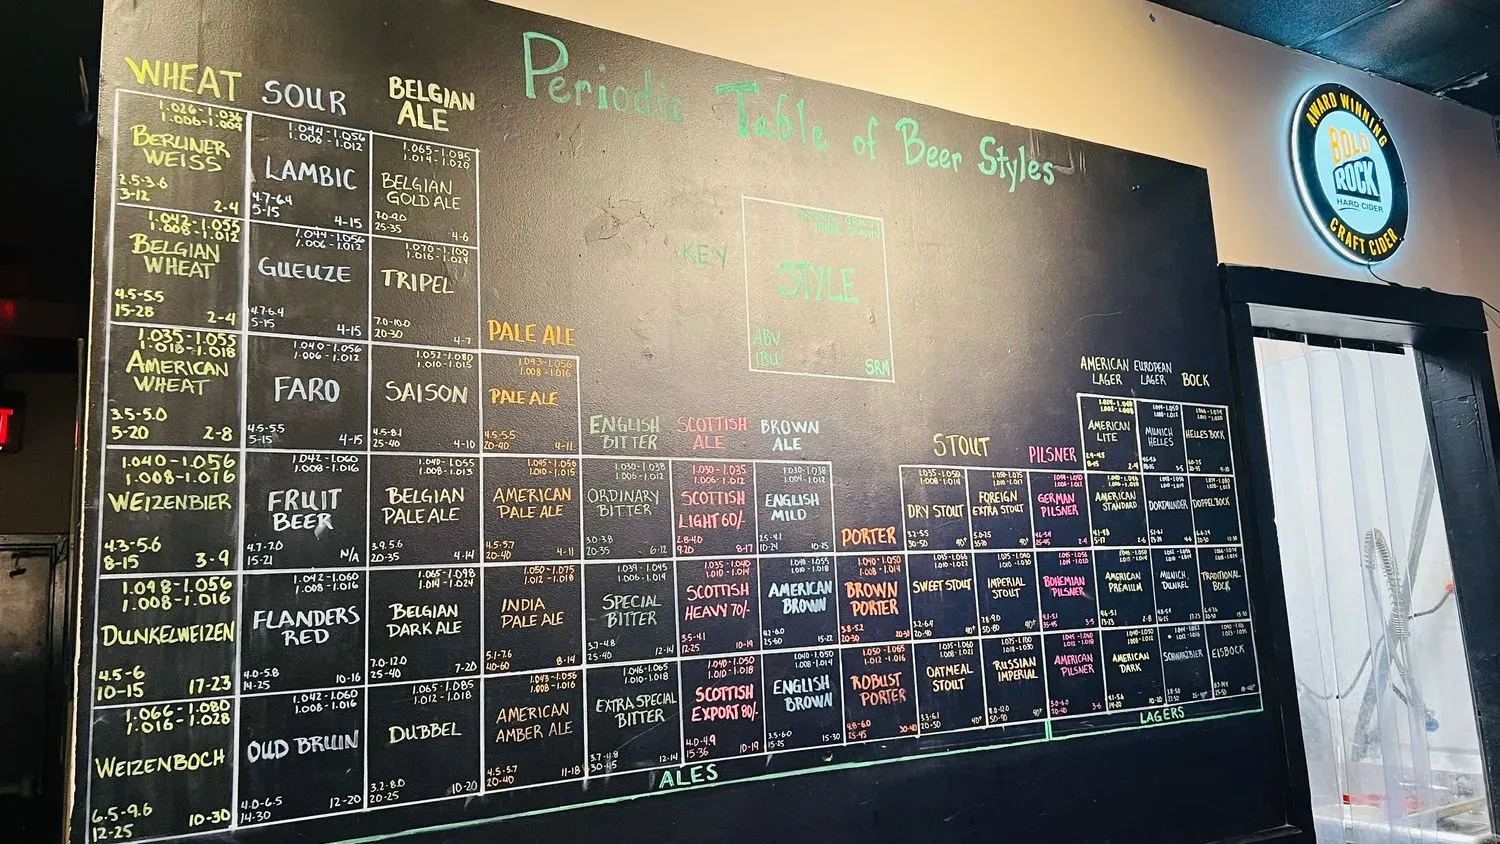 Periodic Table of Beer Styles
KEY
ORIGINAL GRAVITY
STYLE
ABV
IBU
SRM
AWARD WINNING
BOLD
ROCK
HARD CIDER
CRAFT CIDER
WHEAT
1.026-1.036
1.006-1.009
BERLINER
WEISS
2.5-3.6
3-12 2-4
1.042-1.055
1.008-1.012
BELGIAN
WHEAT
4.5-5.5
15-28 2-4
1.035-1.055
1.018-1.018
AMERICAN
WHEAT
3.5-5.0
5-20 2-8
1.040-1.056
1.008-1.016
WEIZENBIER
4.3-5.6
8-15 3-9
1.048-1.056
1.008-1.016
DUNKELWEIZEN
4.5-6
10-15 17-23
1.066-1.080
1.016-1.028
WEIZENBOCH
6.5-9.6
12-25 10-30
SOUR
1.044-1.056
1.006-1.012
LAMBIC
4.7-6.4
5-15 4-15
1.044-1.056
1.006-1.012
GUEUZE
4.7-6.4
5-15 4-15
1.040-1.056
1.006-1.012
FARO
4.5-5.5
5-15 4-15
1.042-1.060
1.008-1.016
FRUIT
BEER
4.7-7.0
15-21 N/A
1.042-1.060
1.008-1.016
FLANDERS
RED
4.0-5.8
14-25 10-16
1.042-1.060
1.008-1.016
OUD BRUIN
4.0-6.5
14-30 12-20
BELGIAN
ALE
1.065-1.085
1.014-1.020
BELGIAN
GOLD ALE
7.0-9.0
25-35 4-6
1.070-1.100
1.016-1.024
TRIPEL
7.0-10.0
20-30 4-7
1.052-1.080
1.010-1.015
SAISON
4.5-8.1
25-40 4-10
1.040-1.055
1.008-1.013
BELGIAN
PALE ALE
3.9-5.6
20-35 4-14
1.065-1.098
1.014-1.024
BELGIAN
DARK ALE
7.0-12.0
25-40 7-20
1.065-1.085
1.012-1.018
DUBBEL
3.2-8.0
20-25 10-20
PALE ALE
1.043-1.056
1.008-1.016
PALE ALE
4.5-5.5
20-40 4-11
1.045-1.056
1.010-1.015
AMERICAN
PALE ALE
4.5-5.7
20-40 4-11
1.050-1.075
1.012-1.018
INDIA
PALE ALE
5.1-7.6
40-60 8-14
1.043-1.056
1.008-1.016
AMERICAN
AMBER ALE
4.5-5.7
20-40 11-18
ENGLISH
BITTER
1.030-1.038
1.006-1.012
ORDINARY
BITTER
3.0-3.8
20-35 6-12
1.039-1.045
1.006-1.014
SPECIAL
BITTER
3.7-4.8
25-40 12-14
1.046-1.065
1.010-1.018
EXTRA SPECIAL
BITTER
3.7-4.8
30-45 12-14
SCOTTISH
ALE
1.030-1.035
1.006-1.012
SCOTTISH
LIGHT 60/-
2.8-4.0
9-20 8-17
1.035-1.040
1.010-1.014
SCOTTISH
HEAVY 70/-
3.5-4.1
12-25 10-19
1.040-1.050
1.010-1.018
SCOTTISH
EXPORT 80/-
4.0-4.9
15-36 10-19
BROWN
ALE
1.030-1.038
1.004-1.012
ENGLISH
MILD
2.5-4.1
10-24 10-25
1.040-1.055
1.010-1.018
AMERICAN
BROWN
4.2-6.0
25-60 15-22
1.040-1.050
1.008-1.014
ENGLISH
BROWN
3.5-6.0
15-25 15-30
PORTER
1.040-1.050
1.008-1.014
BROWN
PORTER
3.8-5.2
20-30 20-30
1.050-1.065
1.012-1.016
ROBUST
PORTER
4.8-6.0
25-45 30-40
STOUT
1.035-1.050
1.008-1.014
DRY STOUT
3.2-5.5
30-50 40+
1.045-1.066
SWEET STOUT
3.2-6.4
20-40 40+
1.035-1.060
1.008-1.021
OATMEAL
STOUT
3.3-6.1
20-50 40+
1.050-1.075
1.010-1.017
FOREIGN
EXTRA STOUT
IMPERIAL
STOUT
50-80 40+
1.075-1.100
1.018-1.030
RUSSIAN
IMPERIAL
8.0-12.0
50-90 40+
PILSNER
GERMAN
PILSNER
BOHEMIAN
PILSNER
35-45 3-5
1.045-1.060
1.012-1.018
AMERICAN
PILSNER
5.0-6.0
20-40 3-6
AMERICAN
LAGER
AMERICAN
LITE
AMERICAN
STANDARD
AMERICAN
PREMIUM
13-23 2-8
AMERICAN
DARK
4.1-5.6
14-20 10-20
EUROPEAN
LAGER
MUNICH
HELLES
DORTMUNDER
MUNICH
DUNKEL
SCHWARZBIER
BOCK
HELLES BOCK
DOPPELBOCK
TRADITIONAL
BOCK
EISBOCK
ALES
LAGERS